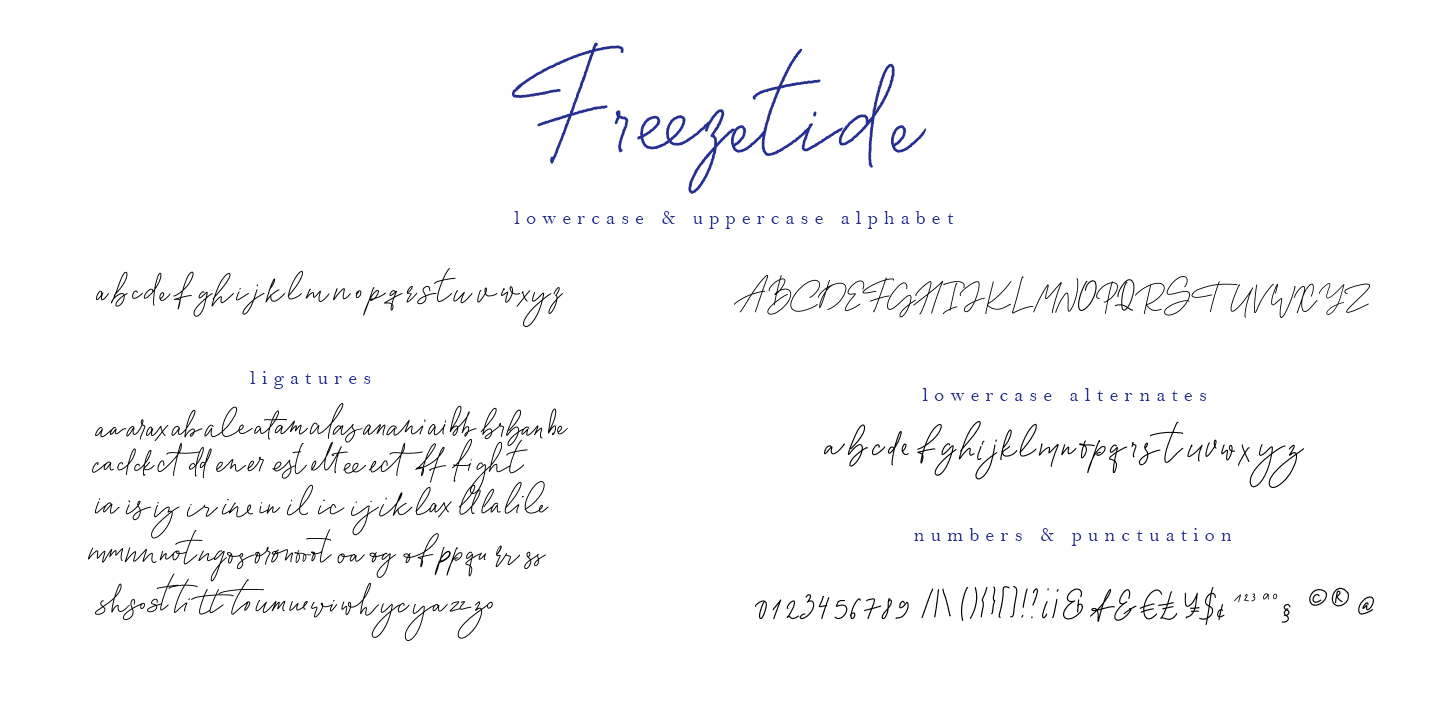 Freezetide
lowercase & uppercase alphabet
abcdefghijklmnopqrstuvwxyz
ABCDEFGHIJKLMNOPQRSTUVWXYZ
ligatures
aa ar ax ab al e at am al as an an ni ai bb br ban be
ca cl ck ct dd en er est elt ee ect ff fight
ia is iz ir ine in il ic ij ik lax ll la li le
mm nn not ng os or on oot oa og of pp qu rr ss
sh so st ti tt to um ue wi wh yc ya zz zo
lowercase alternates
abcdefghijklmnopqrstuvwxyz
numbers & punctuation
0123456789 /|\ (){}[]!?¡¡& & €£¥$¢ 123 ao § ©® @